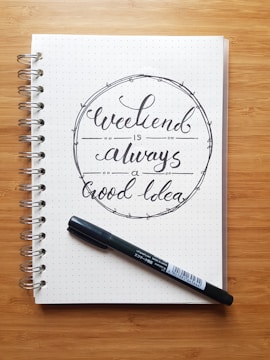 weekend
is
always
a
Good Idea